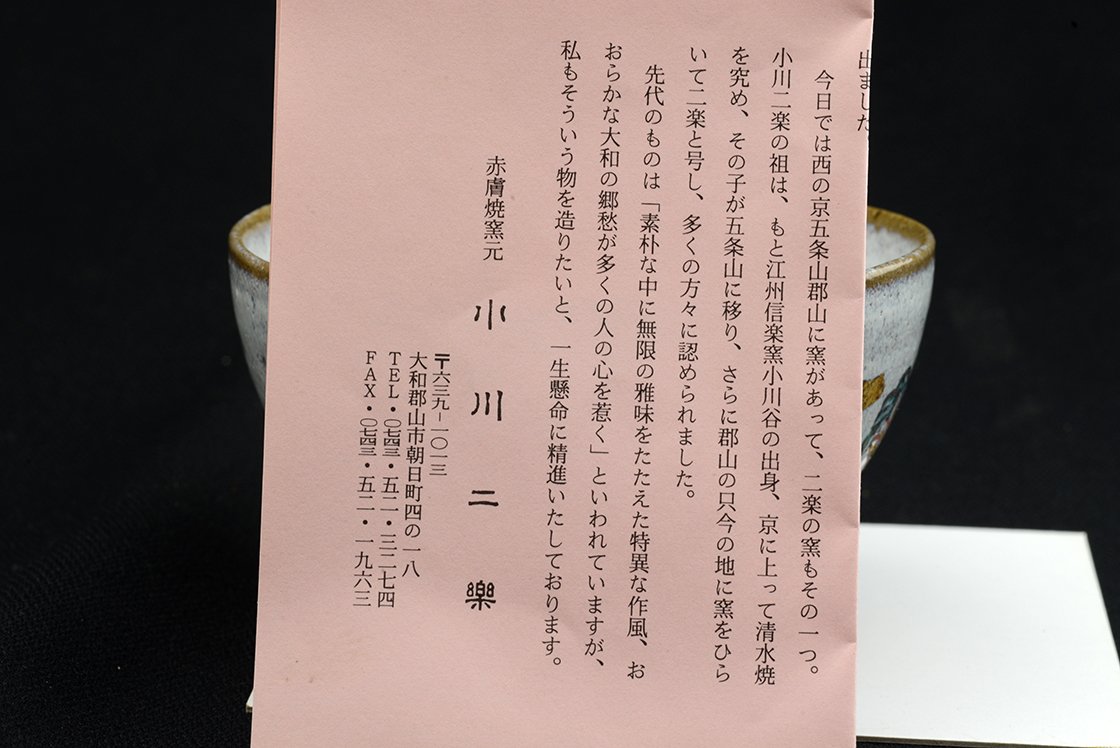 出ました
今日では西の京五条山郡山に窯があって、二楽の窯もその一つ。
小川二楽の祖は、もと江州信楽窯小川谷の出身、京に上って清水焼
を究め、その子が五条山に移り、さらに郡山の只今の地に窯をひら
いて二楽と号し、多くの方々に認められました。
先代のものは「素朴な中に無限の雅味をたたえた特異な作風、お
おらかな大和の郷愁が多くの人の心を惹く」といわれていますが、
私もそういう物を造りたいと、一生懸命に精進いたしております。
赤膚焼窯元 小川二樂
〒六三九-一〇一三
大和郡山市朝日町四の一八
TEL・〇七四三・五二・三二七四
FAX・〇七四三・五二・一九六三